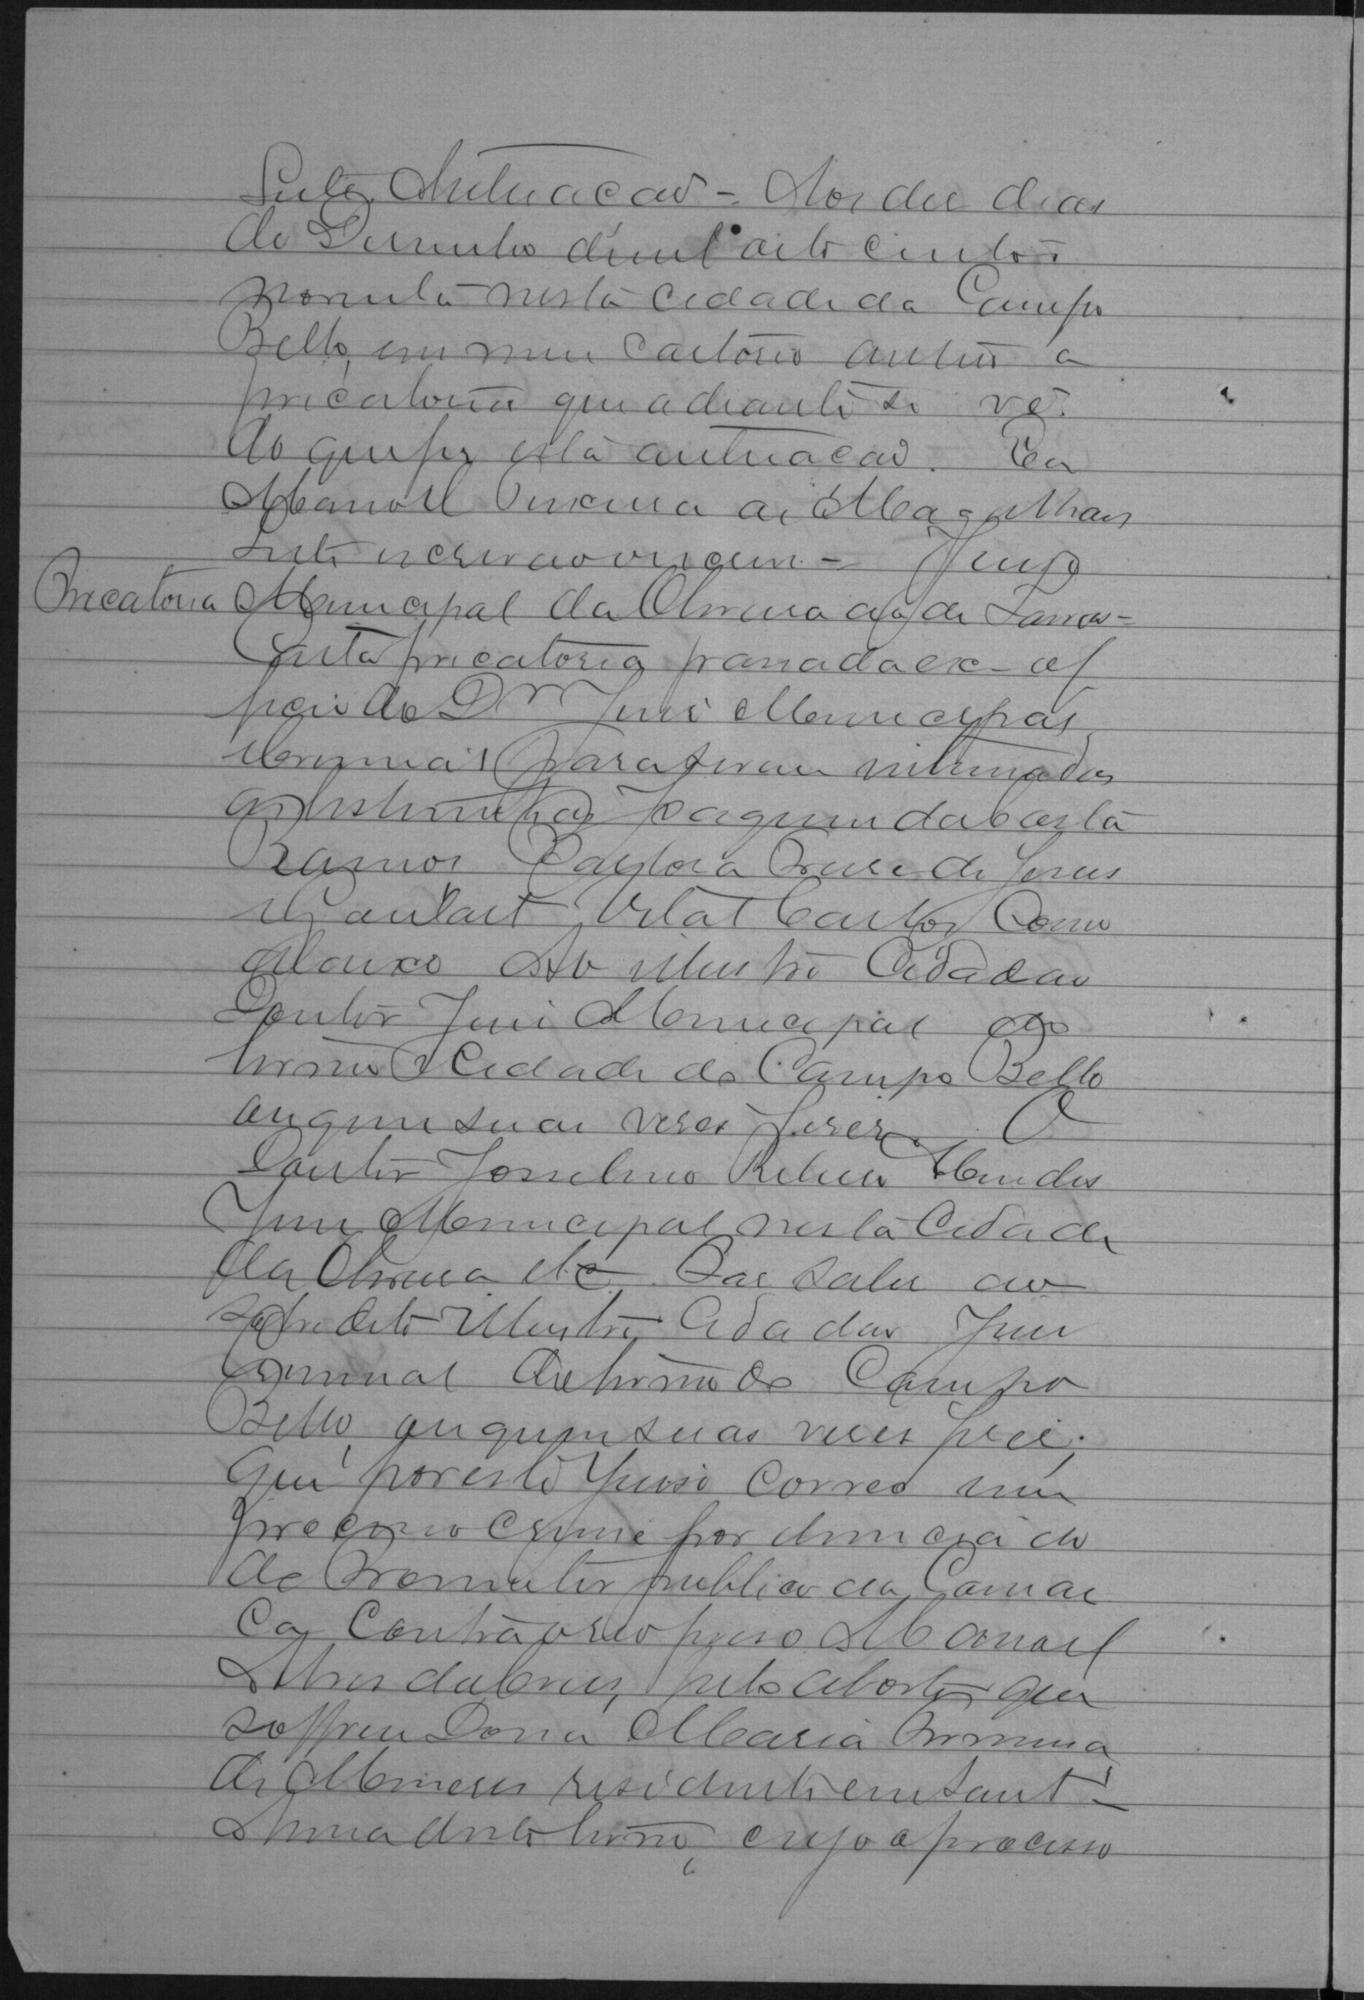 Autuacaõ - Aos dez dias
de Desembro de mil oito centos
noventa nesta cidade da Campo
Bello, em meu Cartorio autuei a
precatoria que adiante se vê.
do que fiz esta autuacaõ. Eu
Manoel Pereira de Magalhaes
escrivaõ escrevi - Juizo
Precatoria Municipal da Oliveira
Carta precatoria passada ex-of
ficio do Dr. Juiz Municipal
para serem intimados
as testemunhas Joaquim da Costa
Ramos de Jesus
Goulart Vital Carlos Como
abaixo Ao illustre Cidadaõ
Doutor Juiz Municipal do
termo e Cidade do Campo Bello
ou quem suas veses fiser. O
Doutor Josselino Ribeiro Mendes
Juiz Municipal nesta Cidade
da Oliveira etc. Faz saber ao
sobredito illustre Cidadaõ Juiz
Criminal do termo do Campo
Bello, ou quem suas veses fizer,
que por este Juiso correo um
processo crime por denuncia do
do Promotor publico da Comar
ca Contra o reo preso Manoel
Alves da Cruz, pelo aborto que
soffreu Dona Maria Firmina
de Meneses residente em Sant'
Anna deste termo, cujo processo